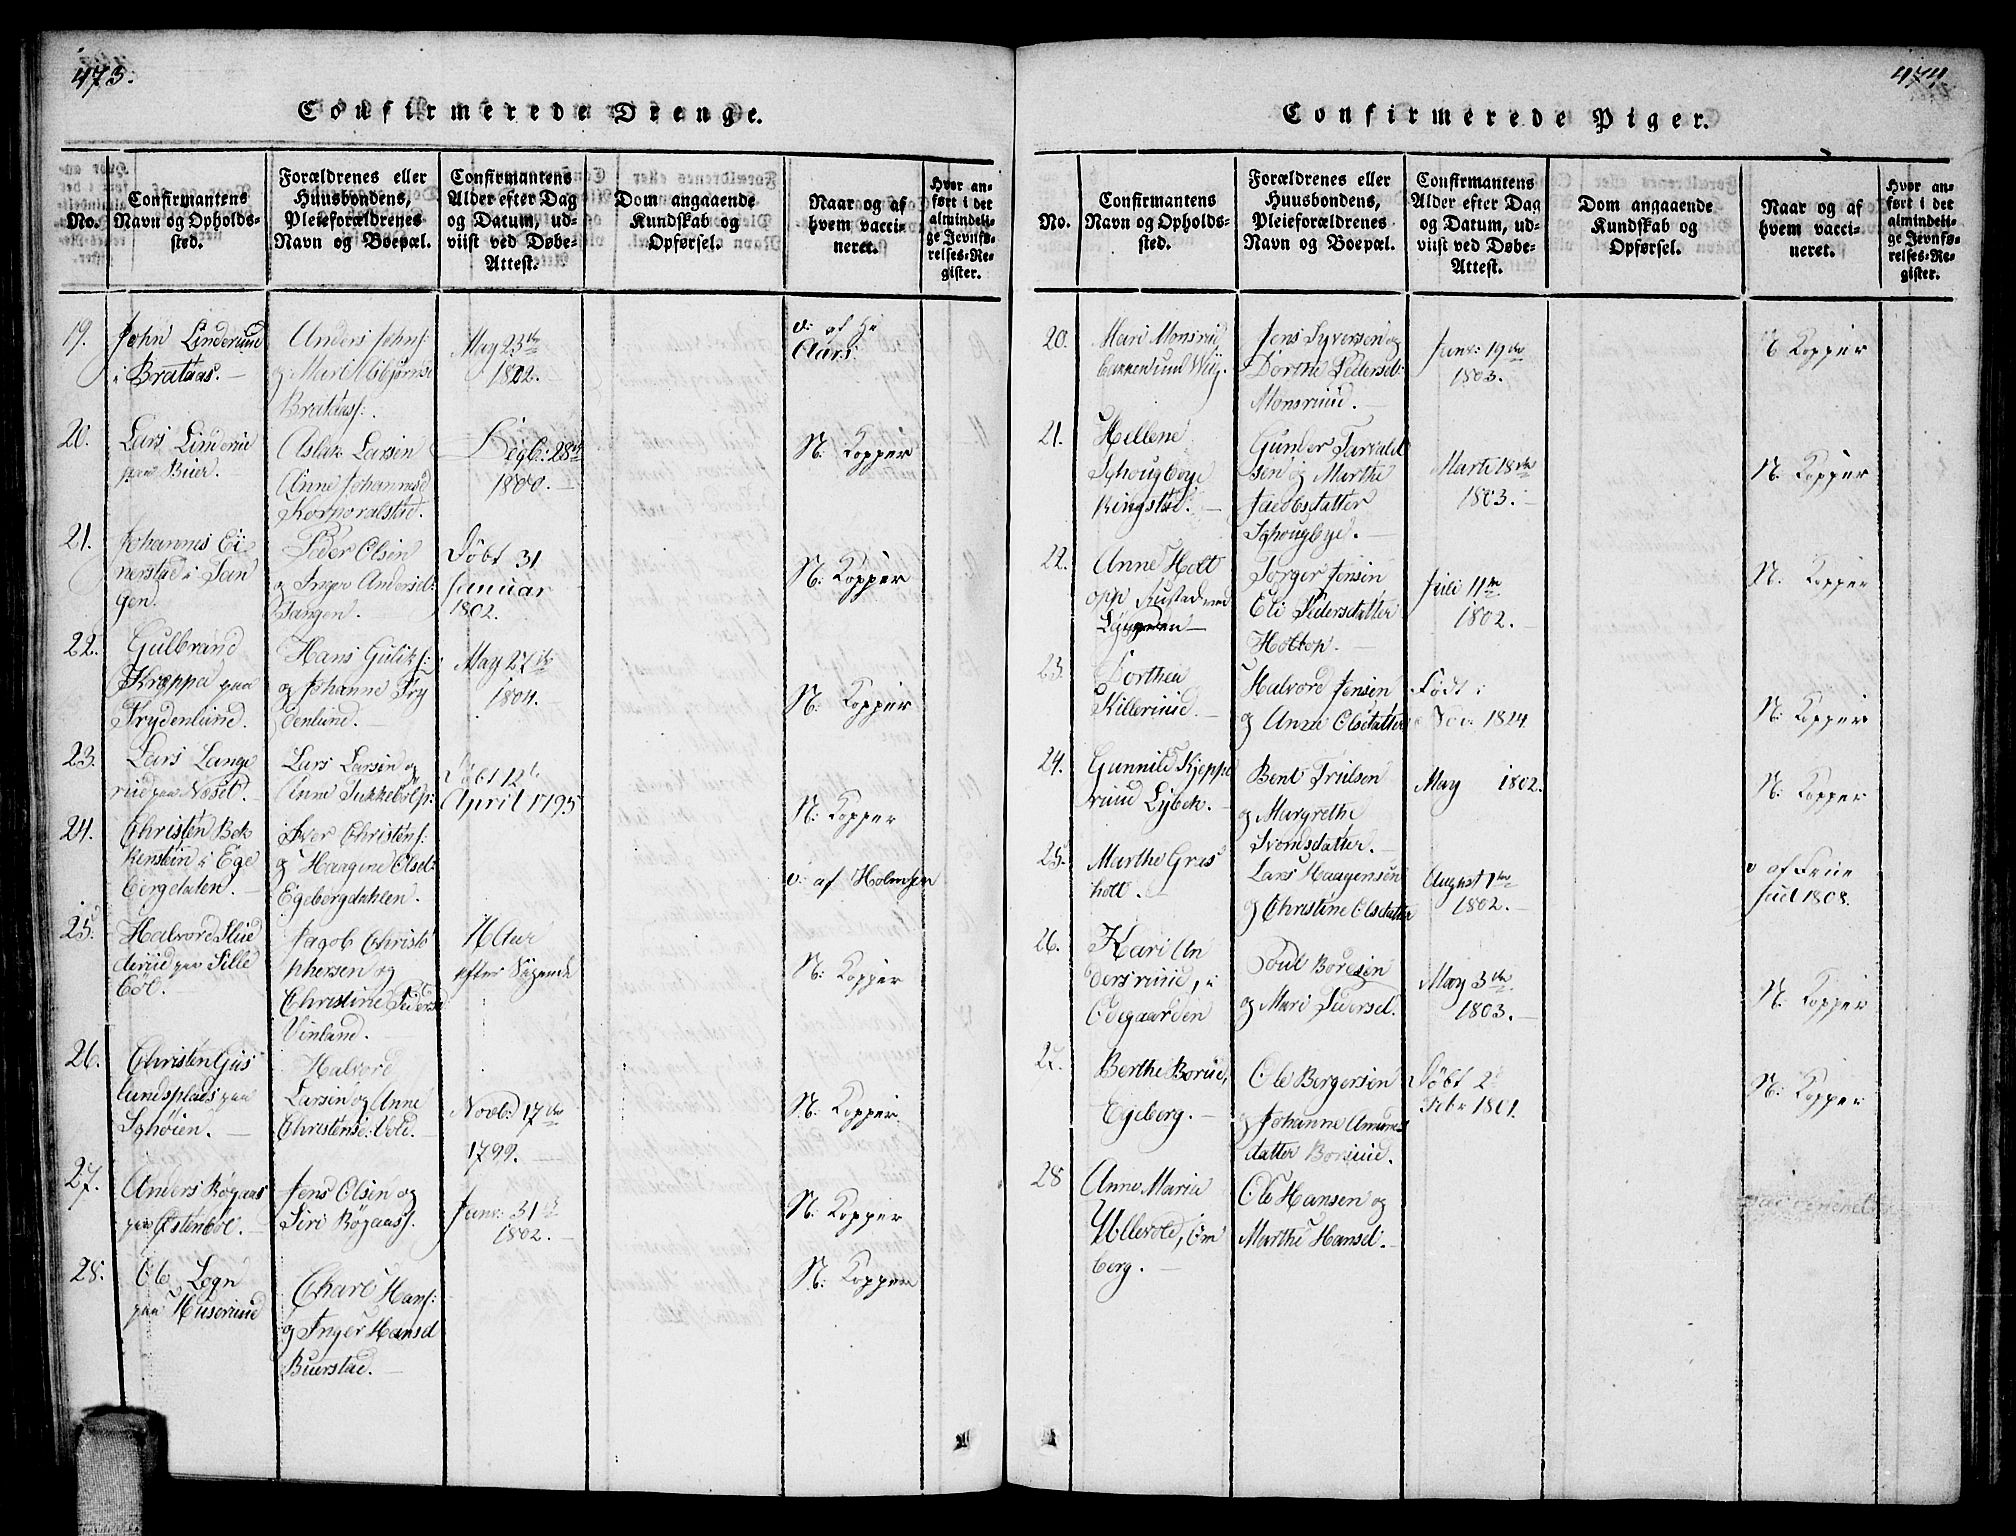 473.
Confirmerede Drenge.
No.
Confirmantens
Navn og Opholds-
sted.
Forældrenes eller
Huusbondens,
Pleieforældrenes
Navn og Boepæl.
Confirmantens
Alder efter Dag
og Datum, ud-
viist ved Døbe-
Attest.
Dom angaaende
Kundskab og
Opførsel.
Naar og af
hvem vacci-
neret.
Hvor an-
ført i det
almindeli-
ge Jevnfø-
relses-Re-
gister.
19.
John Linderud
i Brataas.
Anders Johns:
og Mari Asbjørnsd
Brataas.
May 23de
1802.
v: af Hr
Aars
20.
Lars Linderud
paa Bier.
Aslak Larsen
Anne Johannesd
Korporalstad.
28de
1800.
N: Kopper
21.
Johannes Ei
nerstad i Tan
gen.
Peder Olsen
og Inger Andersd:
Tangen.
Døbt 31
Januar
1802.
N: Kopper
22.
Gulbrand
Kroppa paa
Frydenlund.
Hans Guliks:
og Johanne Fry
denlund.
May 27de
1804.
N: Kopper
23.
Lars Lange
rud paa Noset.
Lars Larsen og
Anne
Døbt 12te
April 1795
N: Kopper
24.
Christen Bek
kensten i Ege
bergdalen.
Iver Christens:
og Haagine Olsd:
Egebergdahlen.
v: af Holmsen
25.
Halvord Slud
derud paa Sille
bøl.
Jagob Christo
phersen og
Christine Peders
Vinland.
16 Aar
efter Sigende
N: Kopper
26.
Christen Gus
lundsplads paa
Sghøien.
Halvord
Larsen og Anne
Christense: Vold.
Novb: 17de
1799.
N: Kopper
27.
Anders Røgaas
paa Østenbøl.
Jens Olsen og
Siri Røgaas.
Janr: 31te
1802.
N: Kopper
28.
Ole Sogn
paa Huserud
Charl Hans:
og Inger Hansd
Buerstad.
N: Kopper
474.
Confirmerede Piger.
No.
Confirmantens
Navn og Opholds-
sted.
Forældrenes eller
Huusbondens,
Pleieforældrenes
Navn og Boepæl.
Confirmantens
Alder efter Dag
og Datum, ud-
viist ved Døbe-
Attest.
Dom angaaende
Kundskab og
Opførsel.
Naar og af
hvem vacci-
neret.
Hvor an-
ført i det
almindeli-
ge Jevnfø-
relses-Re-
gister.
20.
Mari Monsrud
Wiig.
Jens Syversen og
Dorthe Pedersd:
Monsrud.
Janr: 19de
1803.
N Kopper
21.
Hellene
Sghougbye
Ringstad.
Gunder Tarvald
sen og Marthe
Jacobsdatter
Sghougbye.
Marti 18de
1803.
N. Kopper
22.
Anne Holt
opp Rustad ved
Sørger Jensen
Eli Pedersdatter
Holtop.
Juli 11te
1802.
N. Kopper
23.
Dorthea
Killerud.
Halvord Jensen
og Anne Olsdatter
Født i
Nov: 1804.
N: Kopper
24.
Gunnild Kjeppe
rud Lybek.
Bent Trulsen
og Margrethe
Svendsdatter.
May 1802.
N: Kopper
25.
Marthe Gras
holt.
Lars Haagensen
og Christine Olsdatter
August 1te
1802.
v af Frue
Juel 1808.
26.
Kari An
dersrud, i
Ødegaarden
Poul Boresen
og Mari Pedersd.
May 3de
1803.
N: Kopper
27.
Berthe Borud,
Egeberg.
Ole Bergersen
og Johanne Amunds
datter Borud.
Døbt 2
Febr 1801.
N: Kopper
28
Anne Maria
Ullevold, Om
berg.
Ole Hansen og
Marthe Hansd.
vaccineret